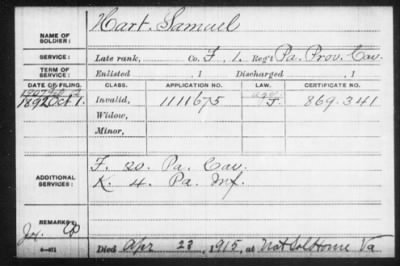 NAME OF SOLDIER: Hart, Samuel
SERVICE: Late rank, Co. F, 1. Reg't Pa. Prov. Cav.
TERM OF SERVICE: Enlisted , 1 Discharged , 1
DATE OF FILING. CLASS. APPLICATION NO. LAW. CERTIFICATE NO.
1892 Oct. 1. Invalid, 1111675 J. 869.341
Widow,
Minor,
ADDITIONAL SERVICES: F. 20. Pa. Cav.
K. 4. Pa. Inf.
REMARKS:
Died Apr 23, 1915, at Nat Sol Home Va